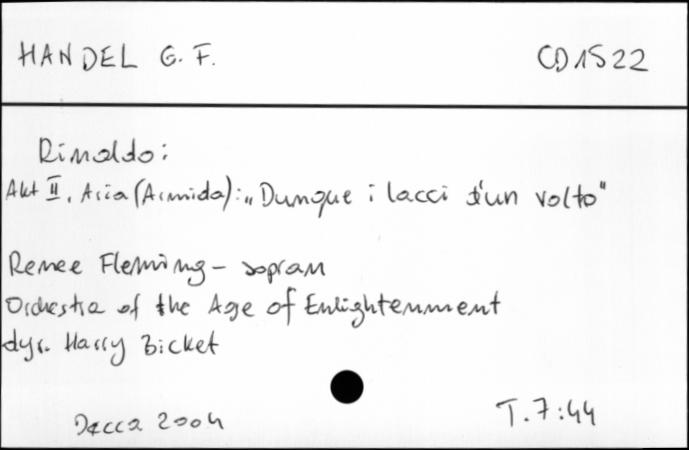 HANDEL G. F. CD1522
Rinaldo:
Akt II. Aria (Armida): „Dunque i lacci d'un volto"
Renee Fleming - sopran
Orchestra of the Age of Enlightenment
dyr. Harry Bicket
Decca 2004 T. 7:44